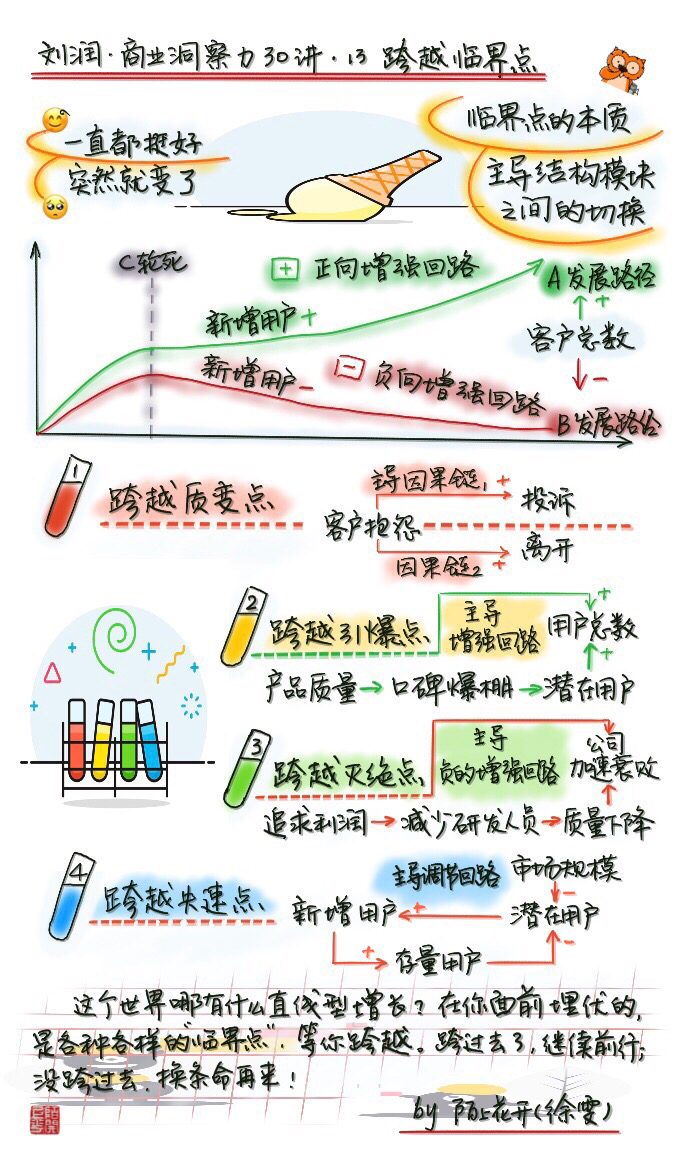 刘润·商业洞察力30讲·13 跨越临界点
一直都挺好
突然就变了
临界点的本质
主导结构模块
之间的切换
C轮死
+ 正向增强回路
A发展路径
新增用户+
+
客户总数
新增用户-
- 负向增强回路
-
B发展路径
1
跨越质变点
主导因果链1 +
投诉
客户抱怨
因果链2 +
离开
2
跨越引爆点
主导
增强回路
+
用户总数
+
产品质量→口碑爆棚→潜在用户
3
跨越灭绝点
主导
负的增强回路
公司
加速衰败
追求利润→减少研发人员→质量下降
4
跨越失速点
主导调节回路
市场规模
-
新增用户
+
潜在用户
+
存量用户
-
这个世界哪有什么直线型增长?在你面前埋伏的,
是各种各样的“临界点”,等你跨越。跨过去了,继续前行;
没跨过去,换条命再来!
by 陌上花开(徐雯)